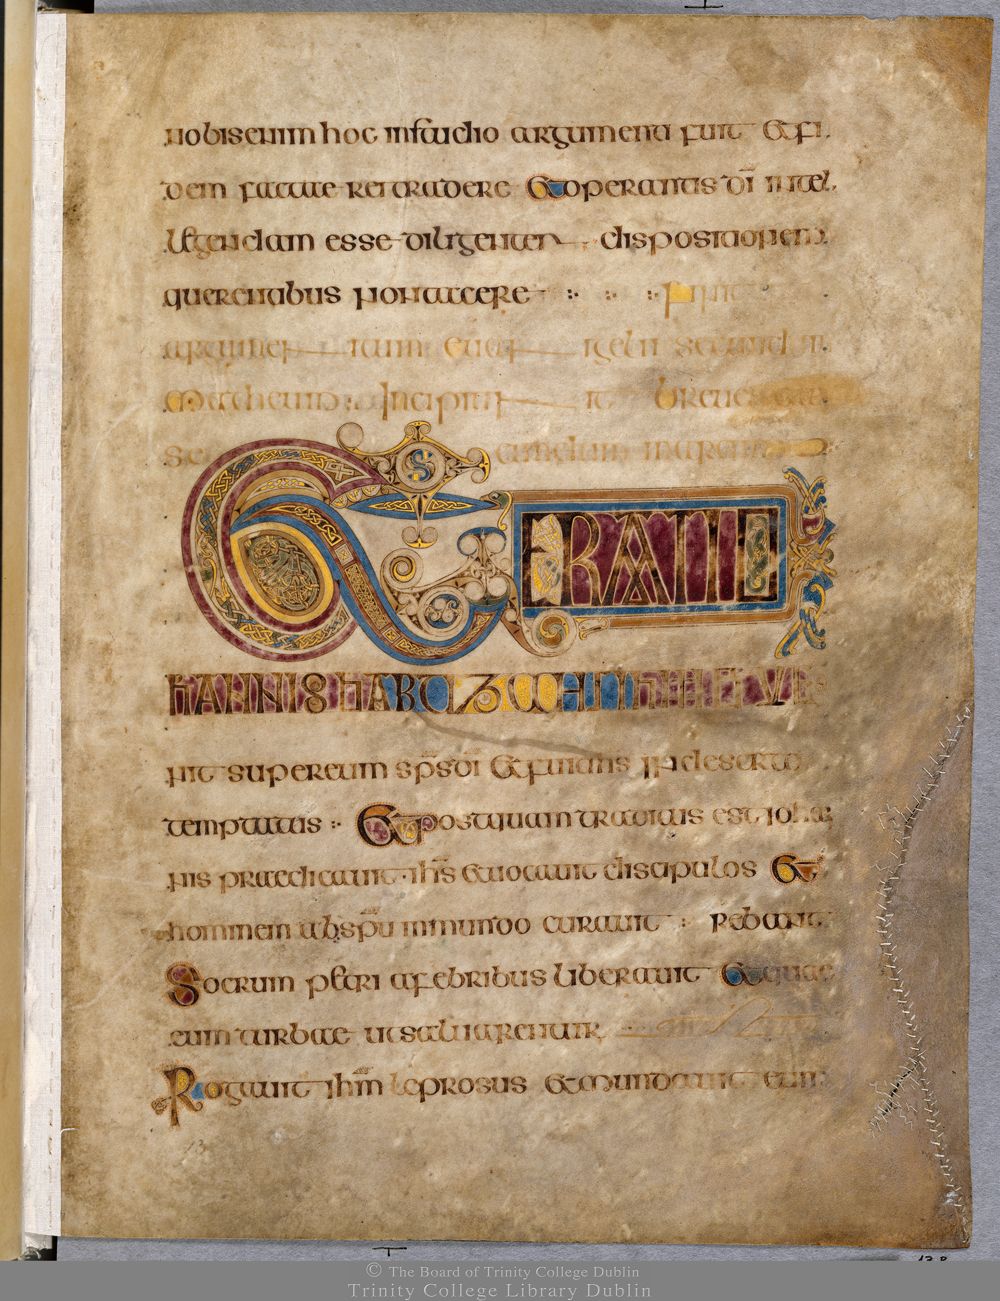 nobiscum hoc in studio argumenti fuit et fi
dem factae rei tradere et operantis dī intel
legendam esse diligenter dispositionem
querentibus non tacere Finit
argumen tum euan gelii secundum
Matheum Incipiunt breues
secundum marcum
ERAT IO
HANNIS BABTIZ
nit super eum sp̄s dī et finians in deserto
temptatis Et postquam traditus est Ioha
nis praedicauit ih̄s euocauit discipulos Et
hominem ab sp̄u inmundo curauit
Socrum petri a febribus liberauit Et quae
cum turbae ut saluarentur
Rogauit ih̄m leprosus et mundauit eum
© The Board of Trinity College Dublin
Trinity College Library Dublin